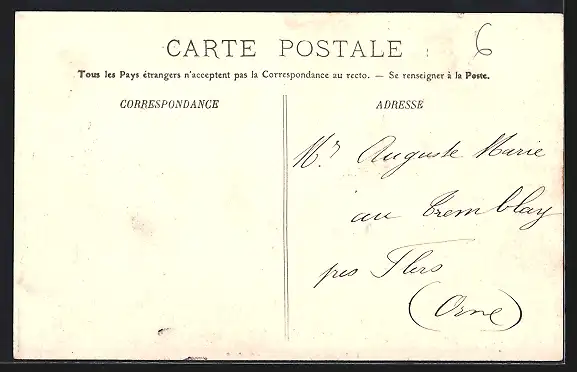 CARTE POSTALE
6
Tous les Pays étrangers n'acceptent pas la Correspondance au recto. — Se renseigner à la Poste.
CORRESPONDANCE
ADRESSE
Mr Auguste Marie
au Tremblay
près Flers
(Orne)